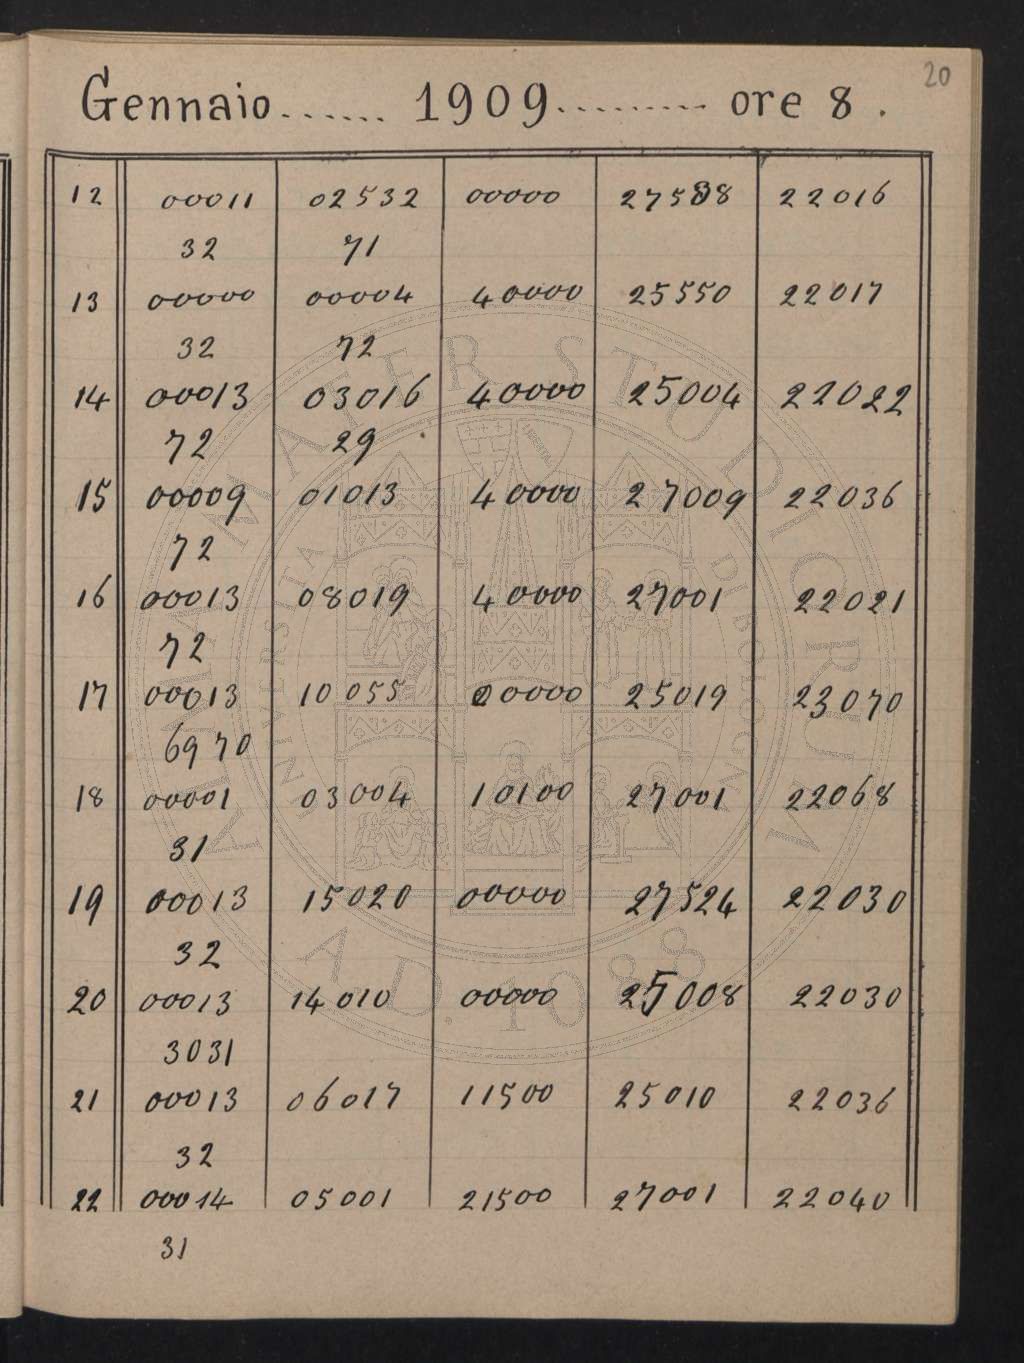 20
Gennaio...... 1909......... ore 8.
12 00011 02532 00000 27588 22016
32 71
13 00000 00004 40000 25550 22017
32 72
14 00013 03016 40000 25004 22022
72 29
15 00009 01013 40000 27009 22036
72
16 00013 08019 40000 27001 22021
72
17 00013 10055 00000 25019 23070
69 70
18 00001 03004 10100 27001 22068
31
19 00013 15020 00000 27524 22030
32
20 00013 14010 00000 25008 22030
3031
21 00013 06017 11500 25010 22036
32
22 00014 05001 21500 27001 22040
31
ALMA MATER STUDIORUM
UNIVERSITÀ DI BOLOGNA
A.D. 1088